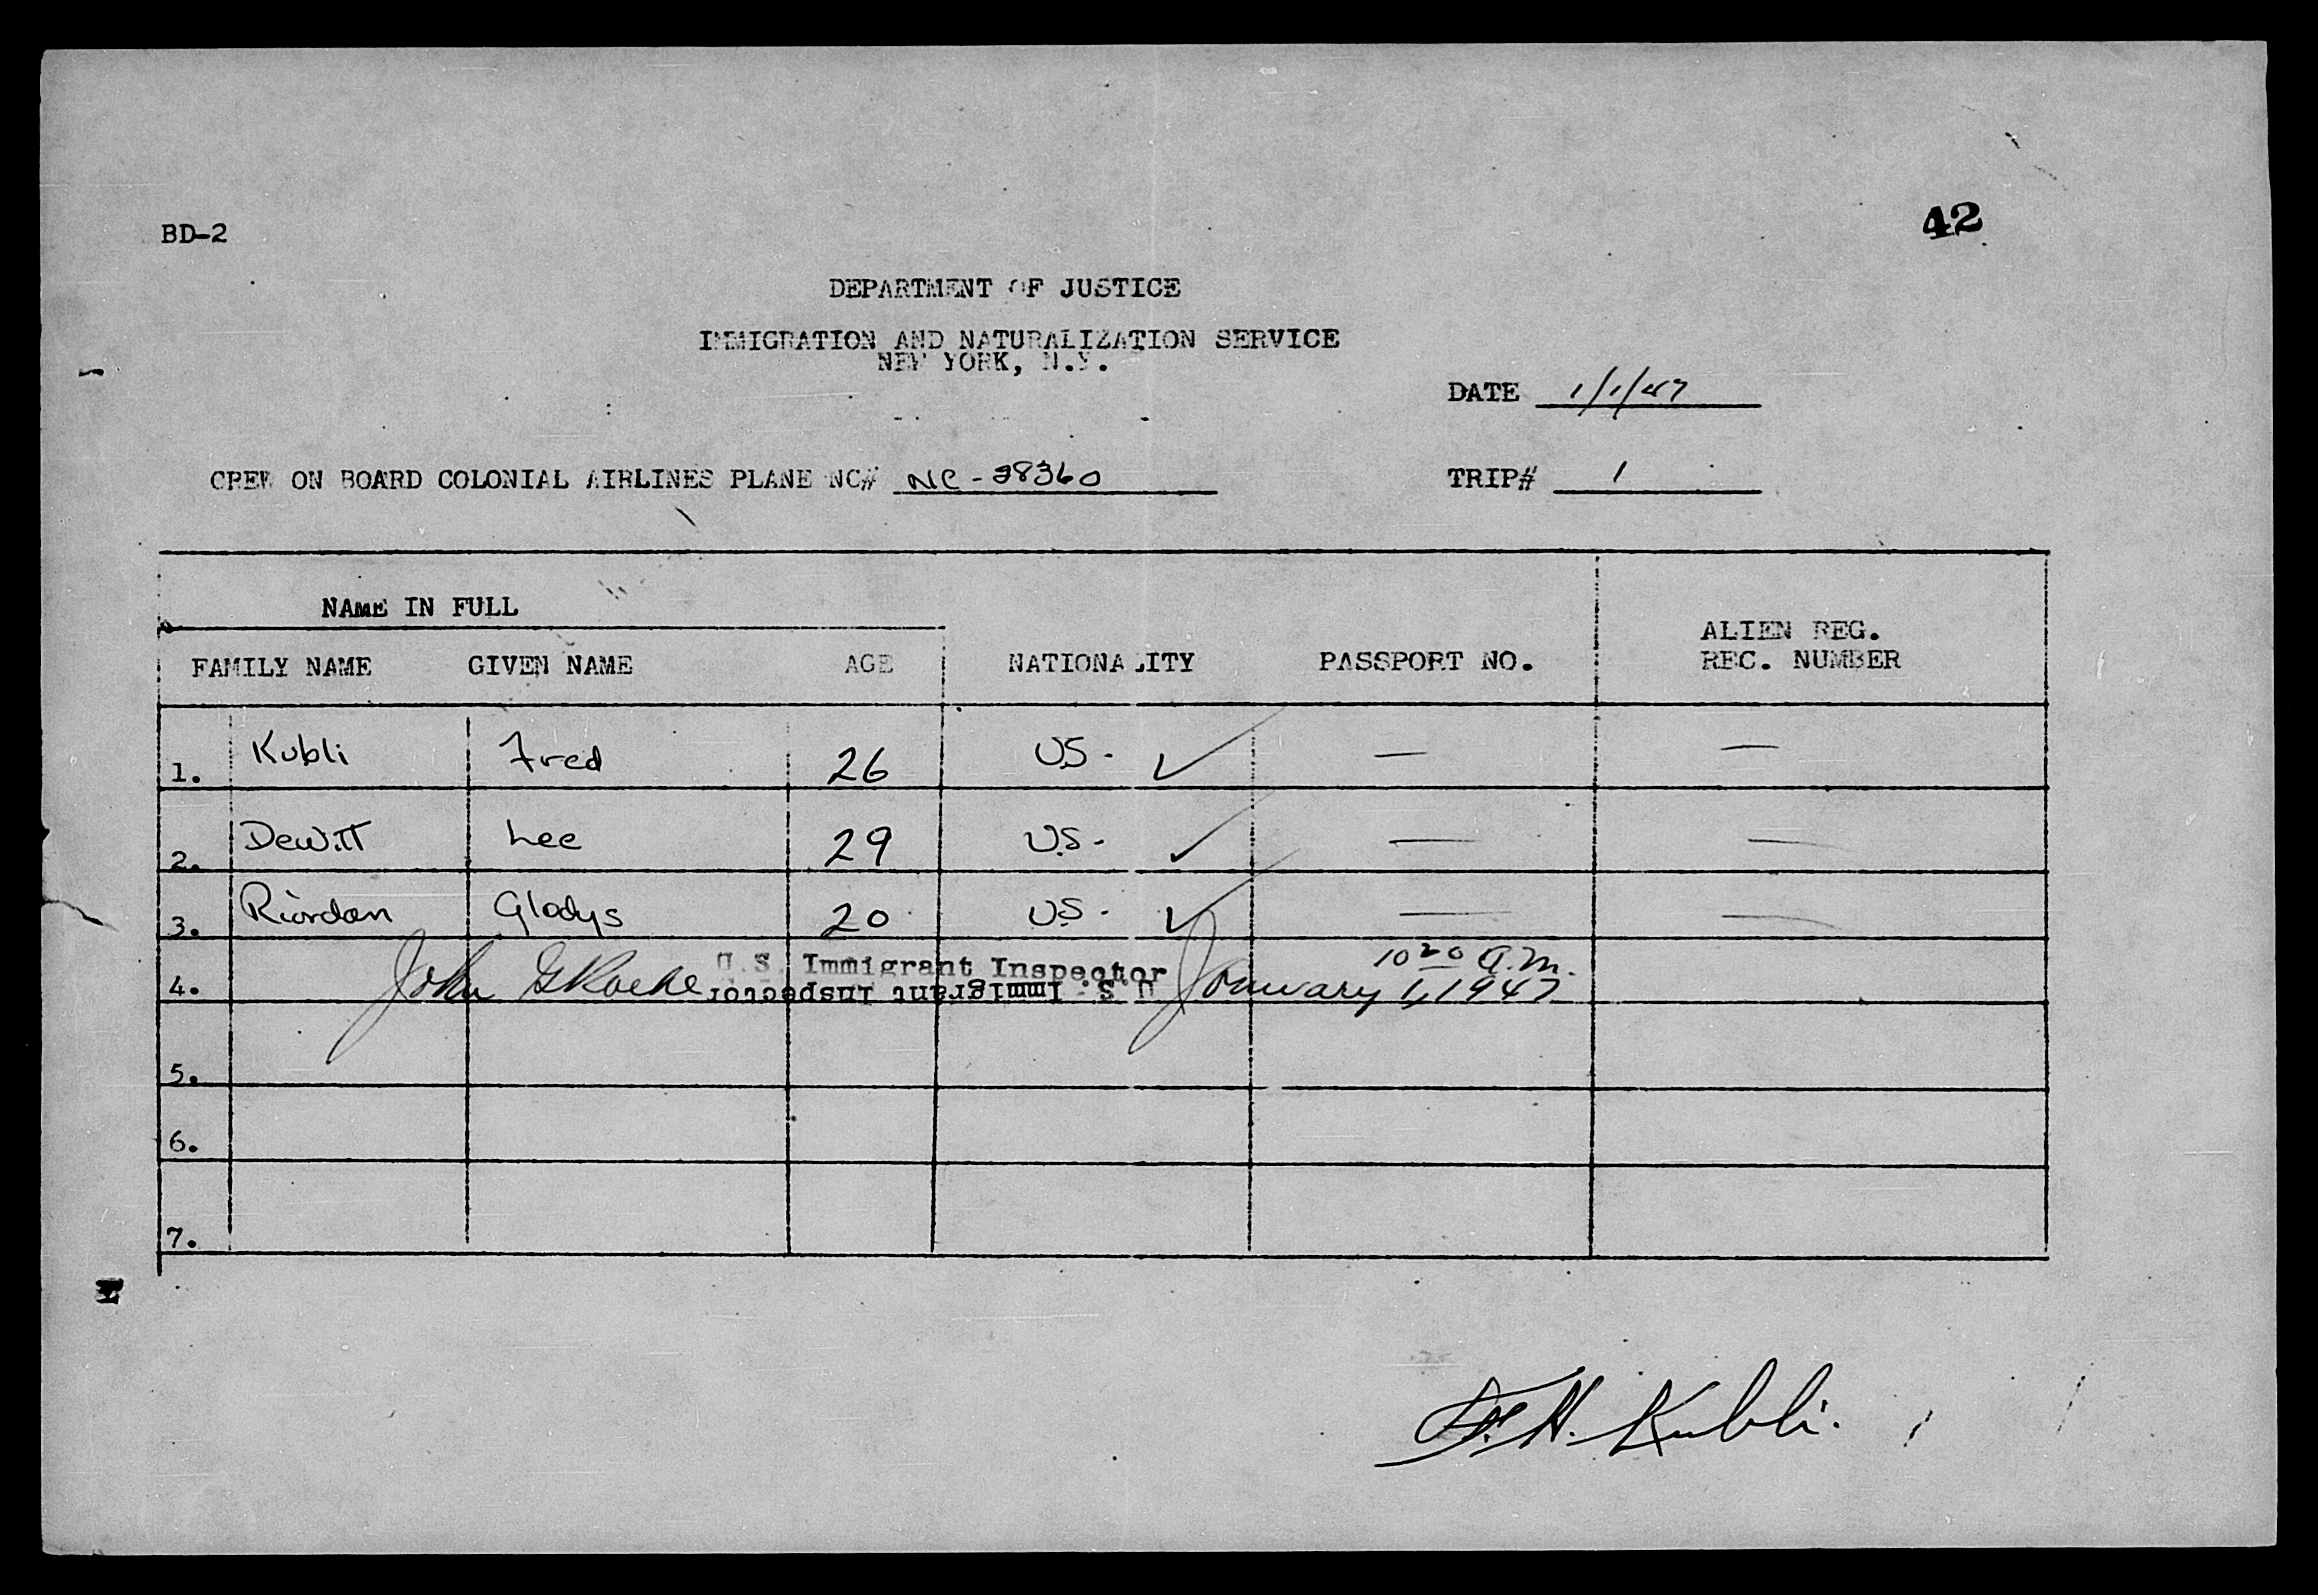 BD-2
42
DEPARTMENT OF JUSTICE
IMMIGRATION AND NATURALIZATION SERVICE
NEW YORK, N.Y.
DATE 1/1/47
CREW ON BOARD COLONIAL AIRLINES PLANE NC# NC-28360
TRIP# 1
NAME IN FULL
FAMILY NAME GIVEN NAME AGE NATIONALITY PASSPORT NO. ALIEN REG. REC. NUMBER
1. Kubli Fred 26 U.S. ✓ — —
2. Dewitt Lee 29 U.S. ✓ — —
3. Riordan Gladys 20 U.S. ✓ — —
10 20 A.M.
4. John U.S. Immigrant Inspector January 1, 1947
U.S. Immigrant Inspector
5.
6.
7.
F. H. Kubli.